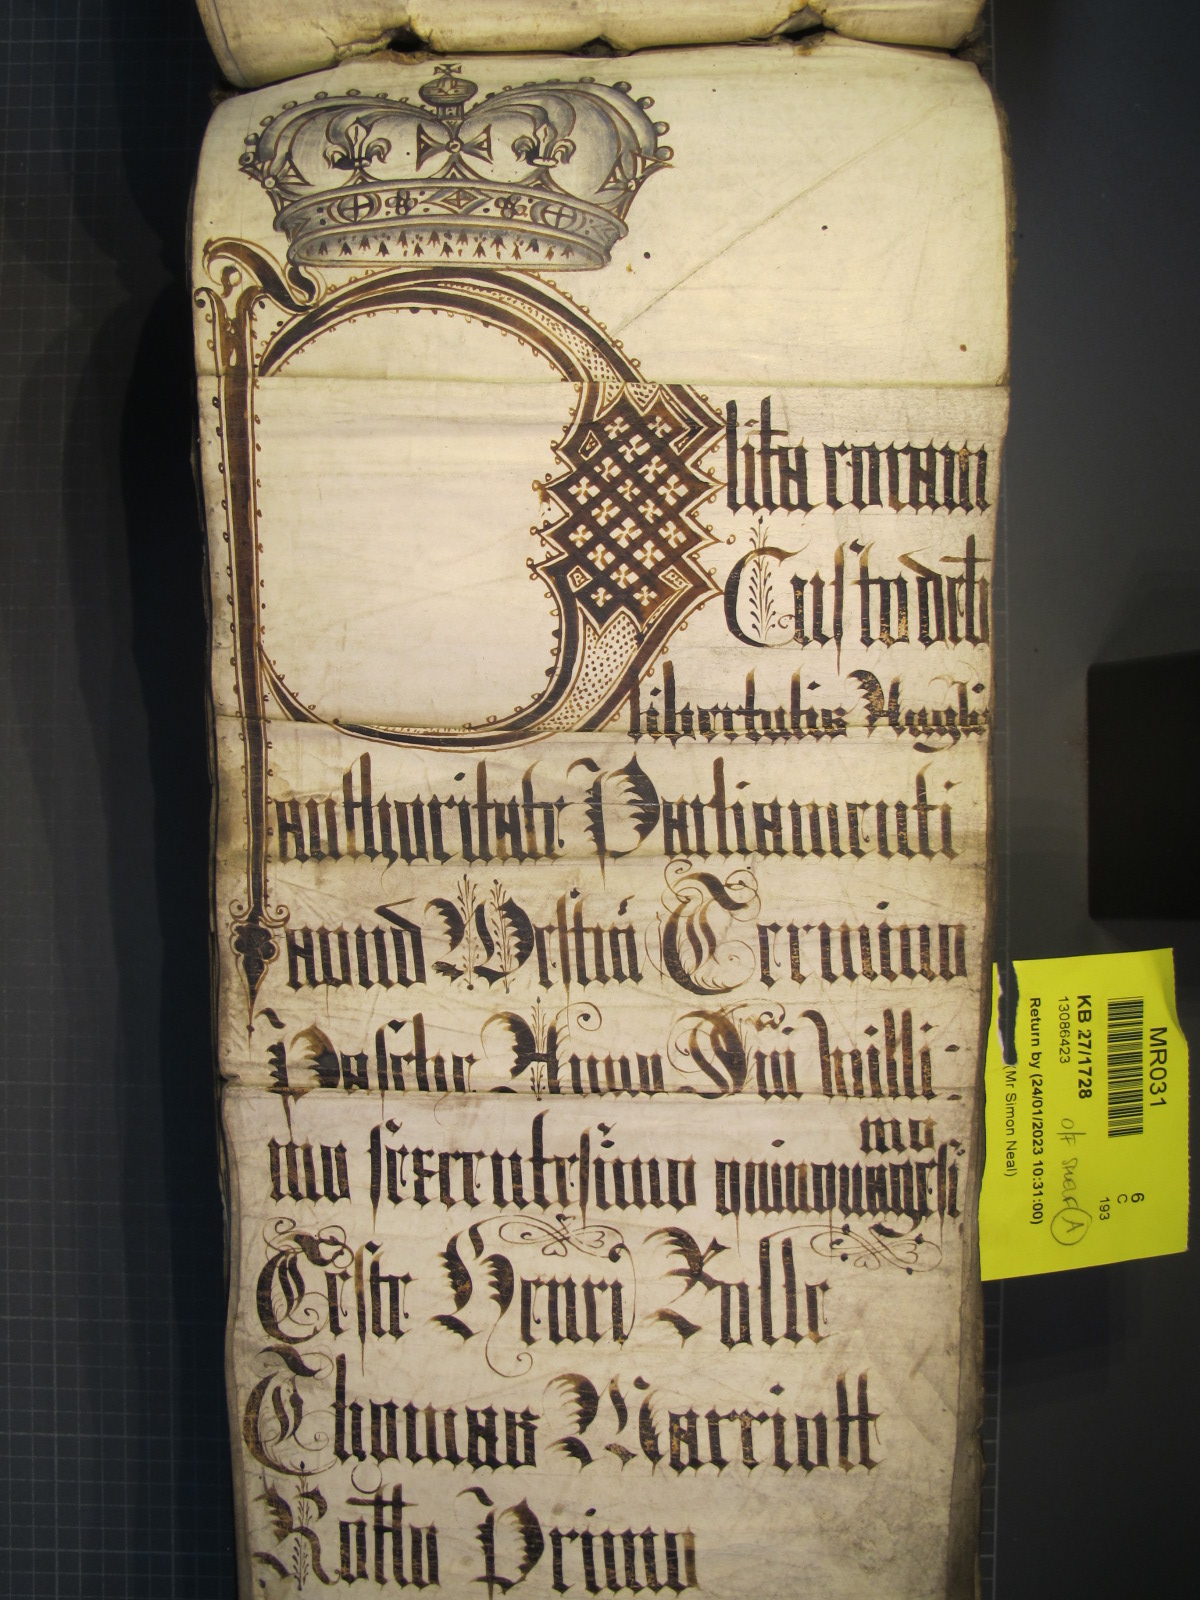 Plita coram
Custodib
libertatis Angli
authoritate Parliamenti
apud Westm Termino
Pasche Anno Dni milli-
mo sexcentesimo quinquagesi
mo
Teste Henri Rolle
Thomas Marriott
Rotto Primo
MR031
KB 27/1728
13086423
Return by (24/01/2023 10:31:00)
(Mr Simon Neal)
6
C
193
A